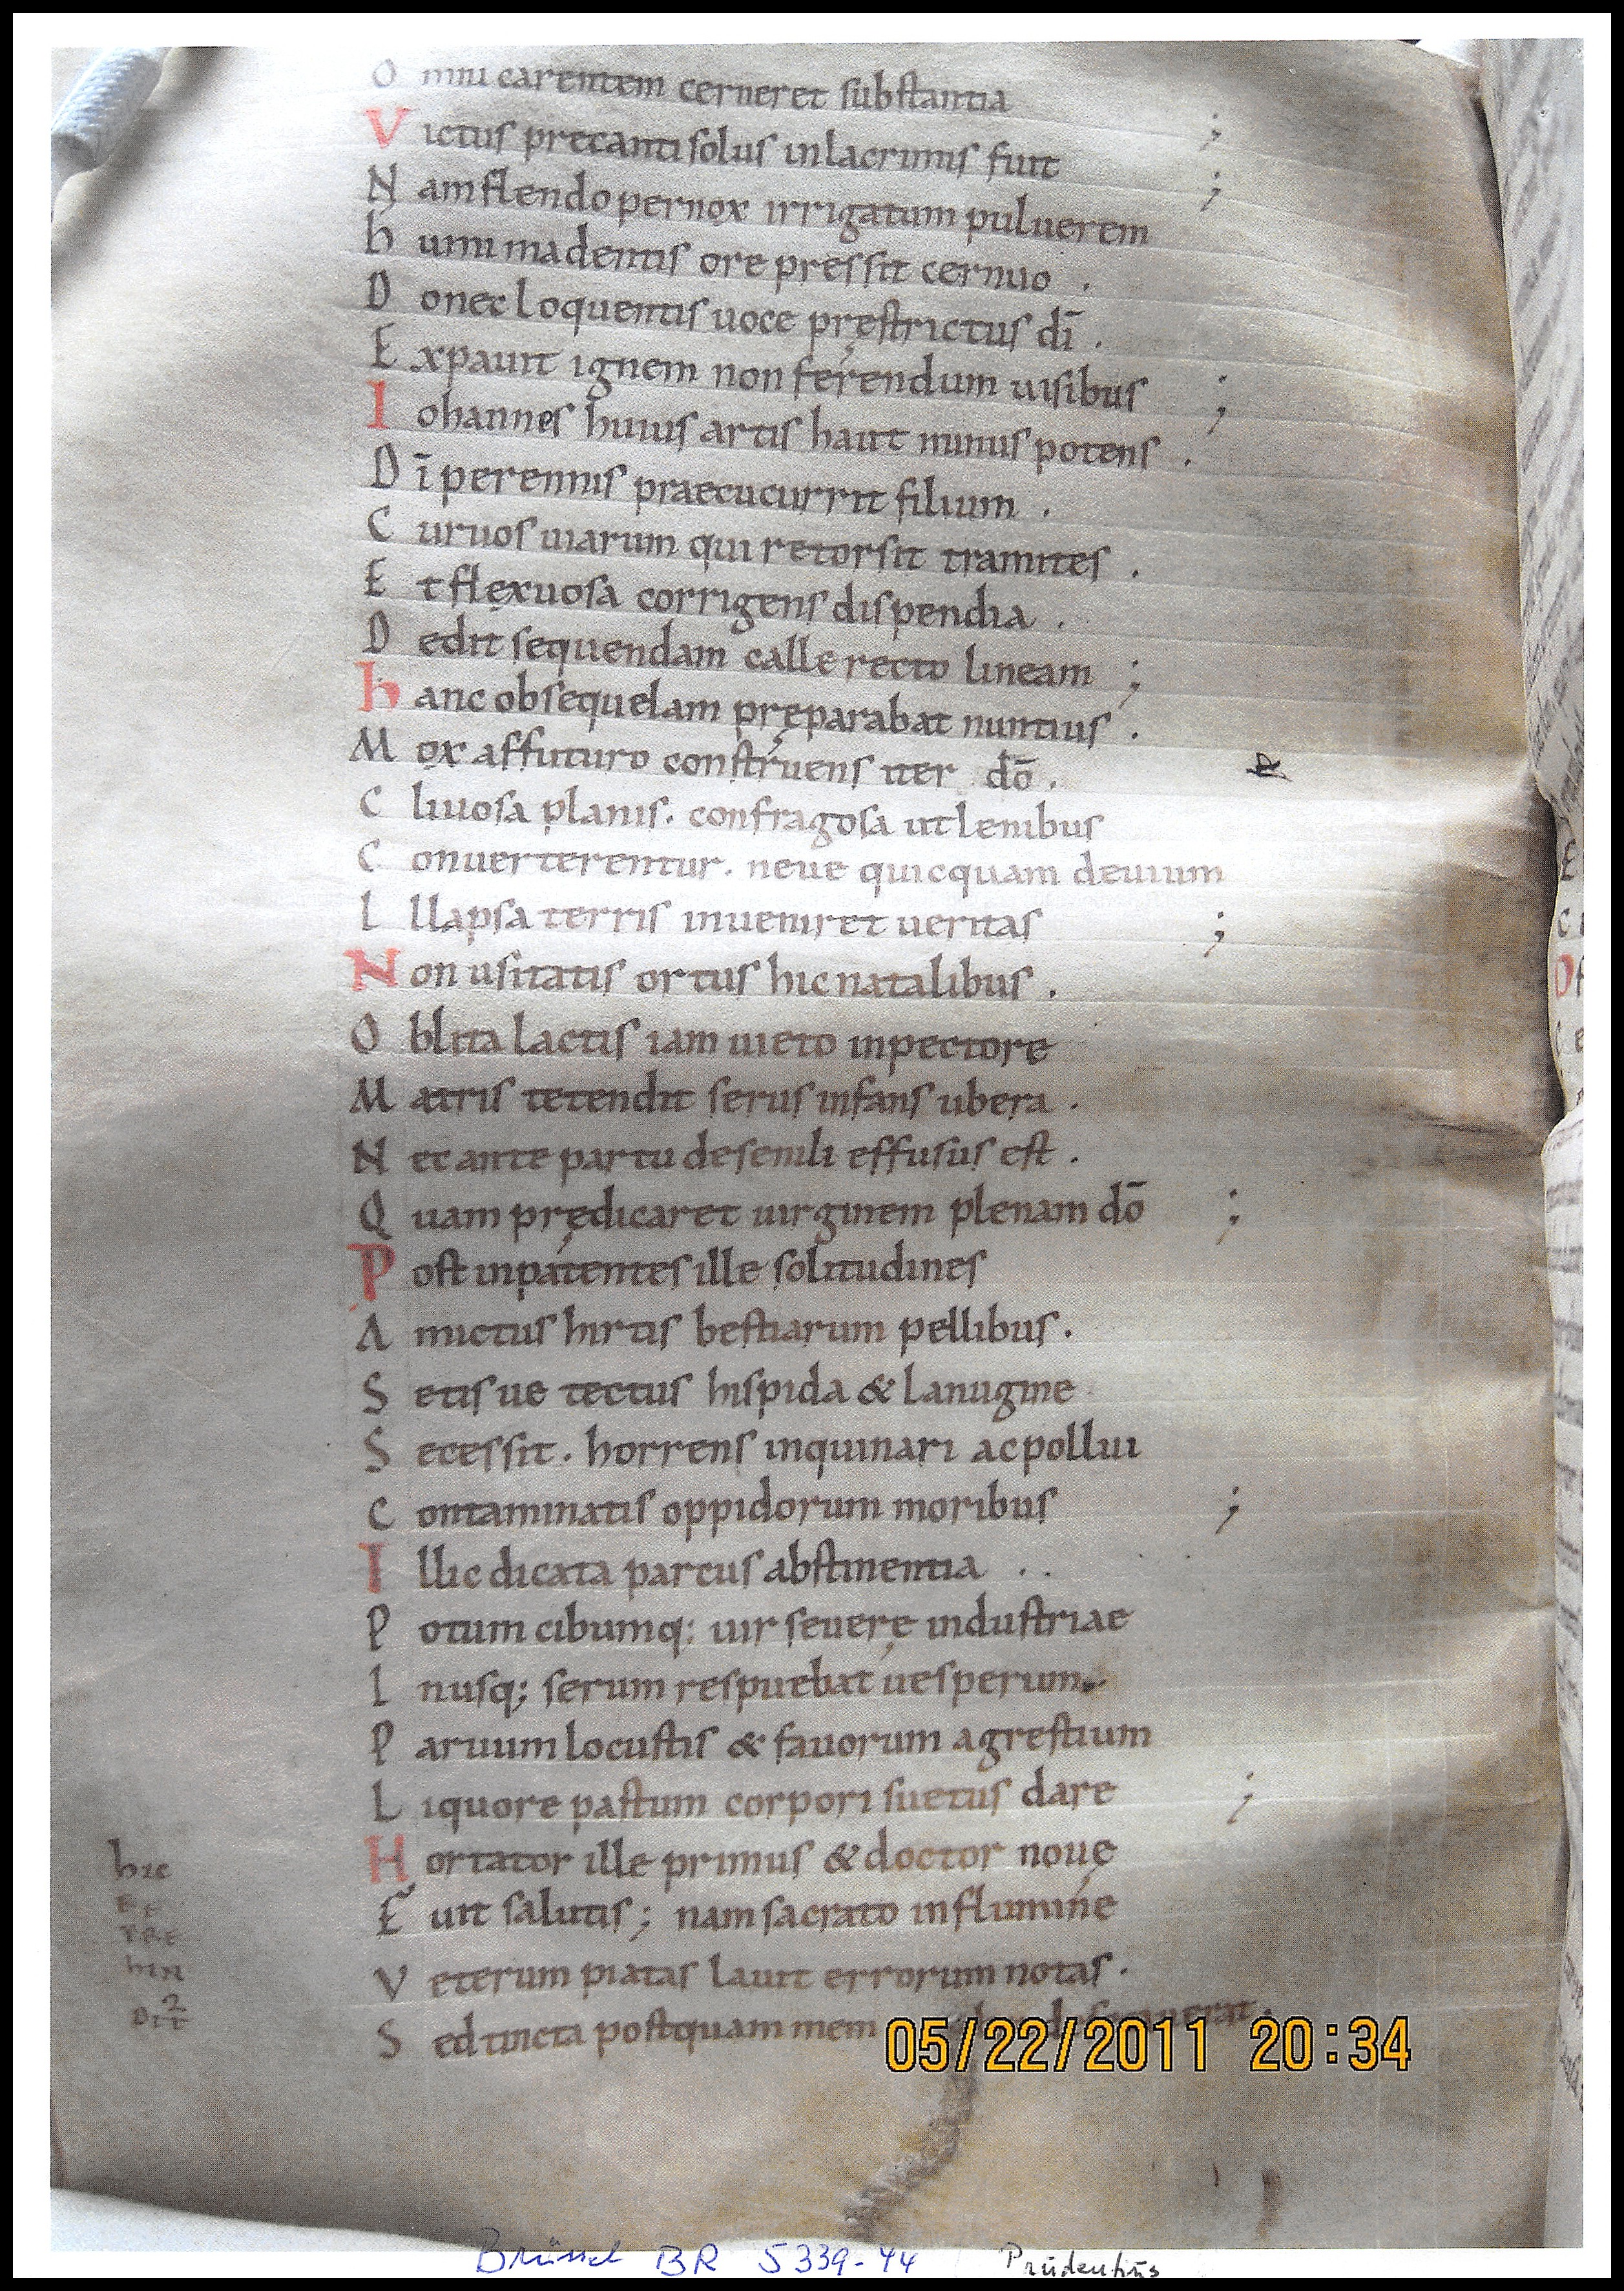 O mni carentem cerneret substantia
V ictus precanti solus inlacrimis fuit ;
N am flendo pernox irrigatum puluerem ;
h umi madentis ore pressit cernuo .
D onec loquentis uoce pręstrictus dī .
E xpauit ignem non ferendum uisibus ;
I ohannes huius artis haut minus potens .
D ī perennis praecucurrit filium .
C uruos uiarum qui retorsit tramites .
E t flexuosa corrigens dispendia .
D edit sequendam calle recto lineam ;
h anc obsequelam pręparabat nuntius .
M ox affuturo construens iter dō .
C liuosa planis . confragosa ut lenibus
C onuerterentur . neue quicquam deuium
I llapsa terris inueniret ueritas ;
N on usitatis ortus hic natalibus .
O blita lactis iam uieto inpectore
M atris tetendit serus infans ubera .
N ec ante partu de senili effusus est .
Q uam prędicaret uirginem plenam dō ;
P ost inpatentes ille solitudines
A mictus hirtis bestiarum pellibus .
S etis ue tectus hispida & lanugine
S ecessit . horrens inquinari ac pollui
C ontaminatis oppidorum moribus ;
I llic dicata parcus abstinentia . .
P otum cibumq; uir seuerę industriae
I nusq; serum respuebat uesperum .
P aruum locustis & fauorum agrestium
L iquore pastum corpori suetus dare ;
H ortator ille primus & doctor nouę
F uit salutis ; nam sacrato in flumine
V eterum piatas lauit errorum notas .
S ed tincta postquam mem
hic
TRE
hin
05/22/2011 20:34
Brüssel BR 5339-44 Prudentius